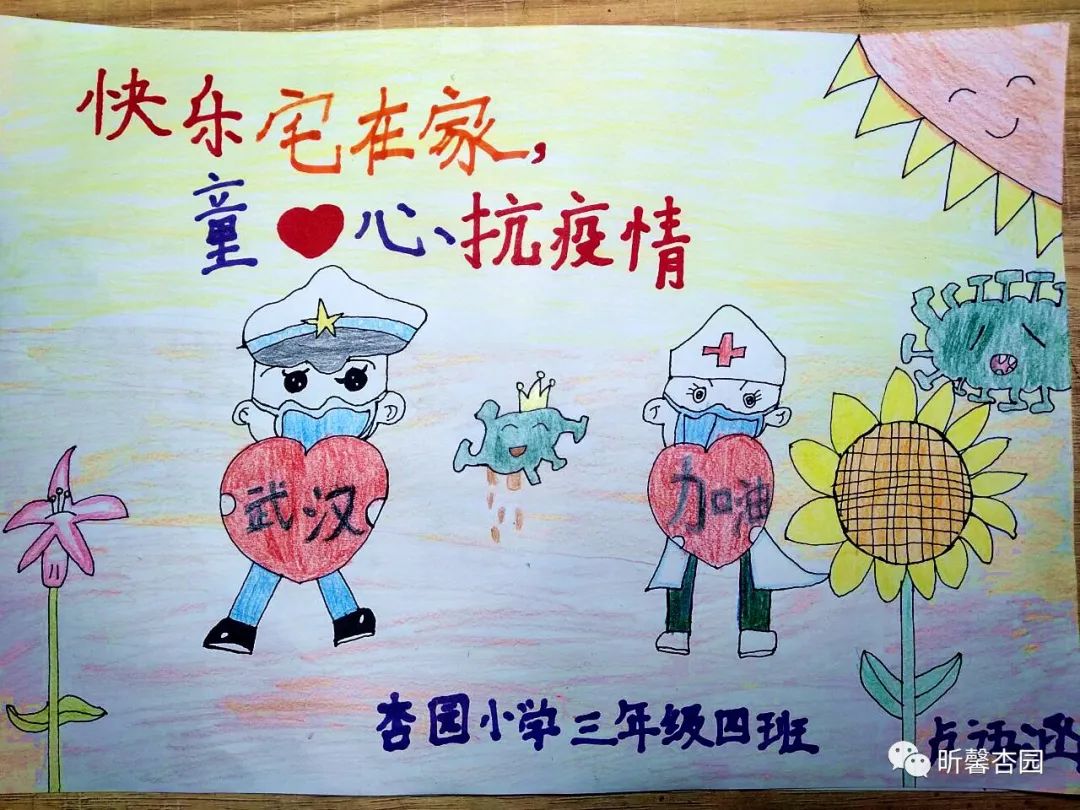 快乐宅在家，
童心抗疫情
武汉
加油
杏园小学三年级四班
昕馨杏园